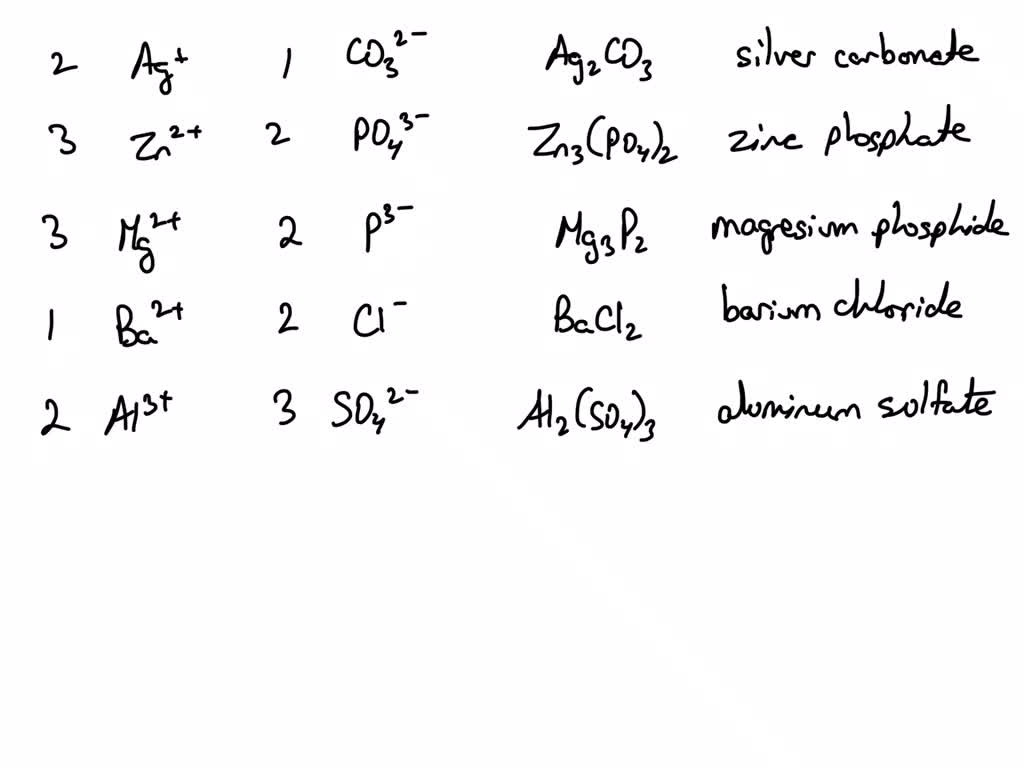 2 Ag⁺ 1 CO₃²⁻ Ag₂CO₃ silver carbonate
3 Zn²⁺ 2 PO₄³⁻ Zn₃(PO₄)₂ zinc phosphate
3 Mg²⁺ 2 P³⁻ Mg₃P₂ magesium phosphide
1 Ba²⁺ 2 Cl⁻ BaCl₂ barium chloride
2 Al³⁺ 3 SO₄²⁻ Al₂(SO₄)₃ aluminum sulfate